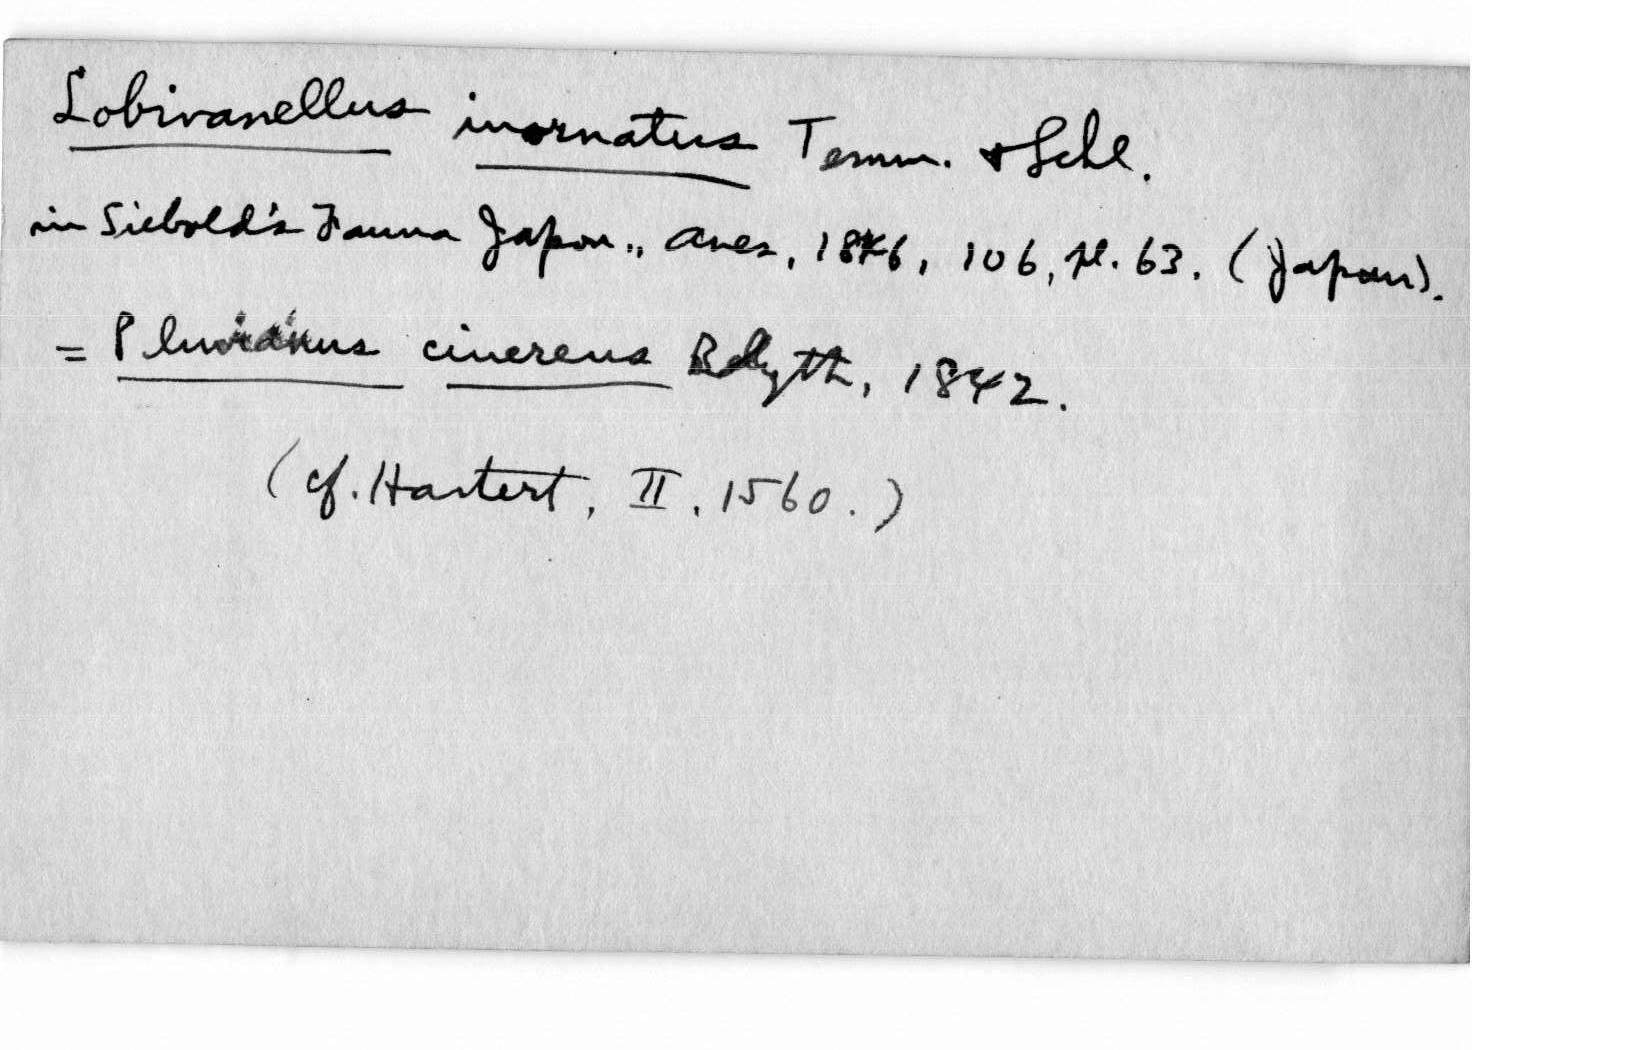 Lobivanellus inornatus Temm. & Schl.
in Siebold's Fauna Japon., Aves, 1846, 106, pl. 63. (Japan).
= Pluvianus cinereus Blyth, 1842.
(cf. Hartert, II, 1560.)